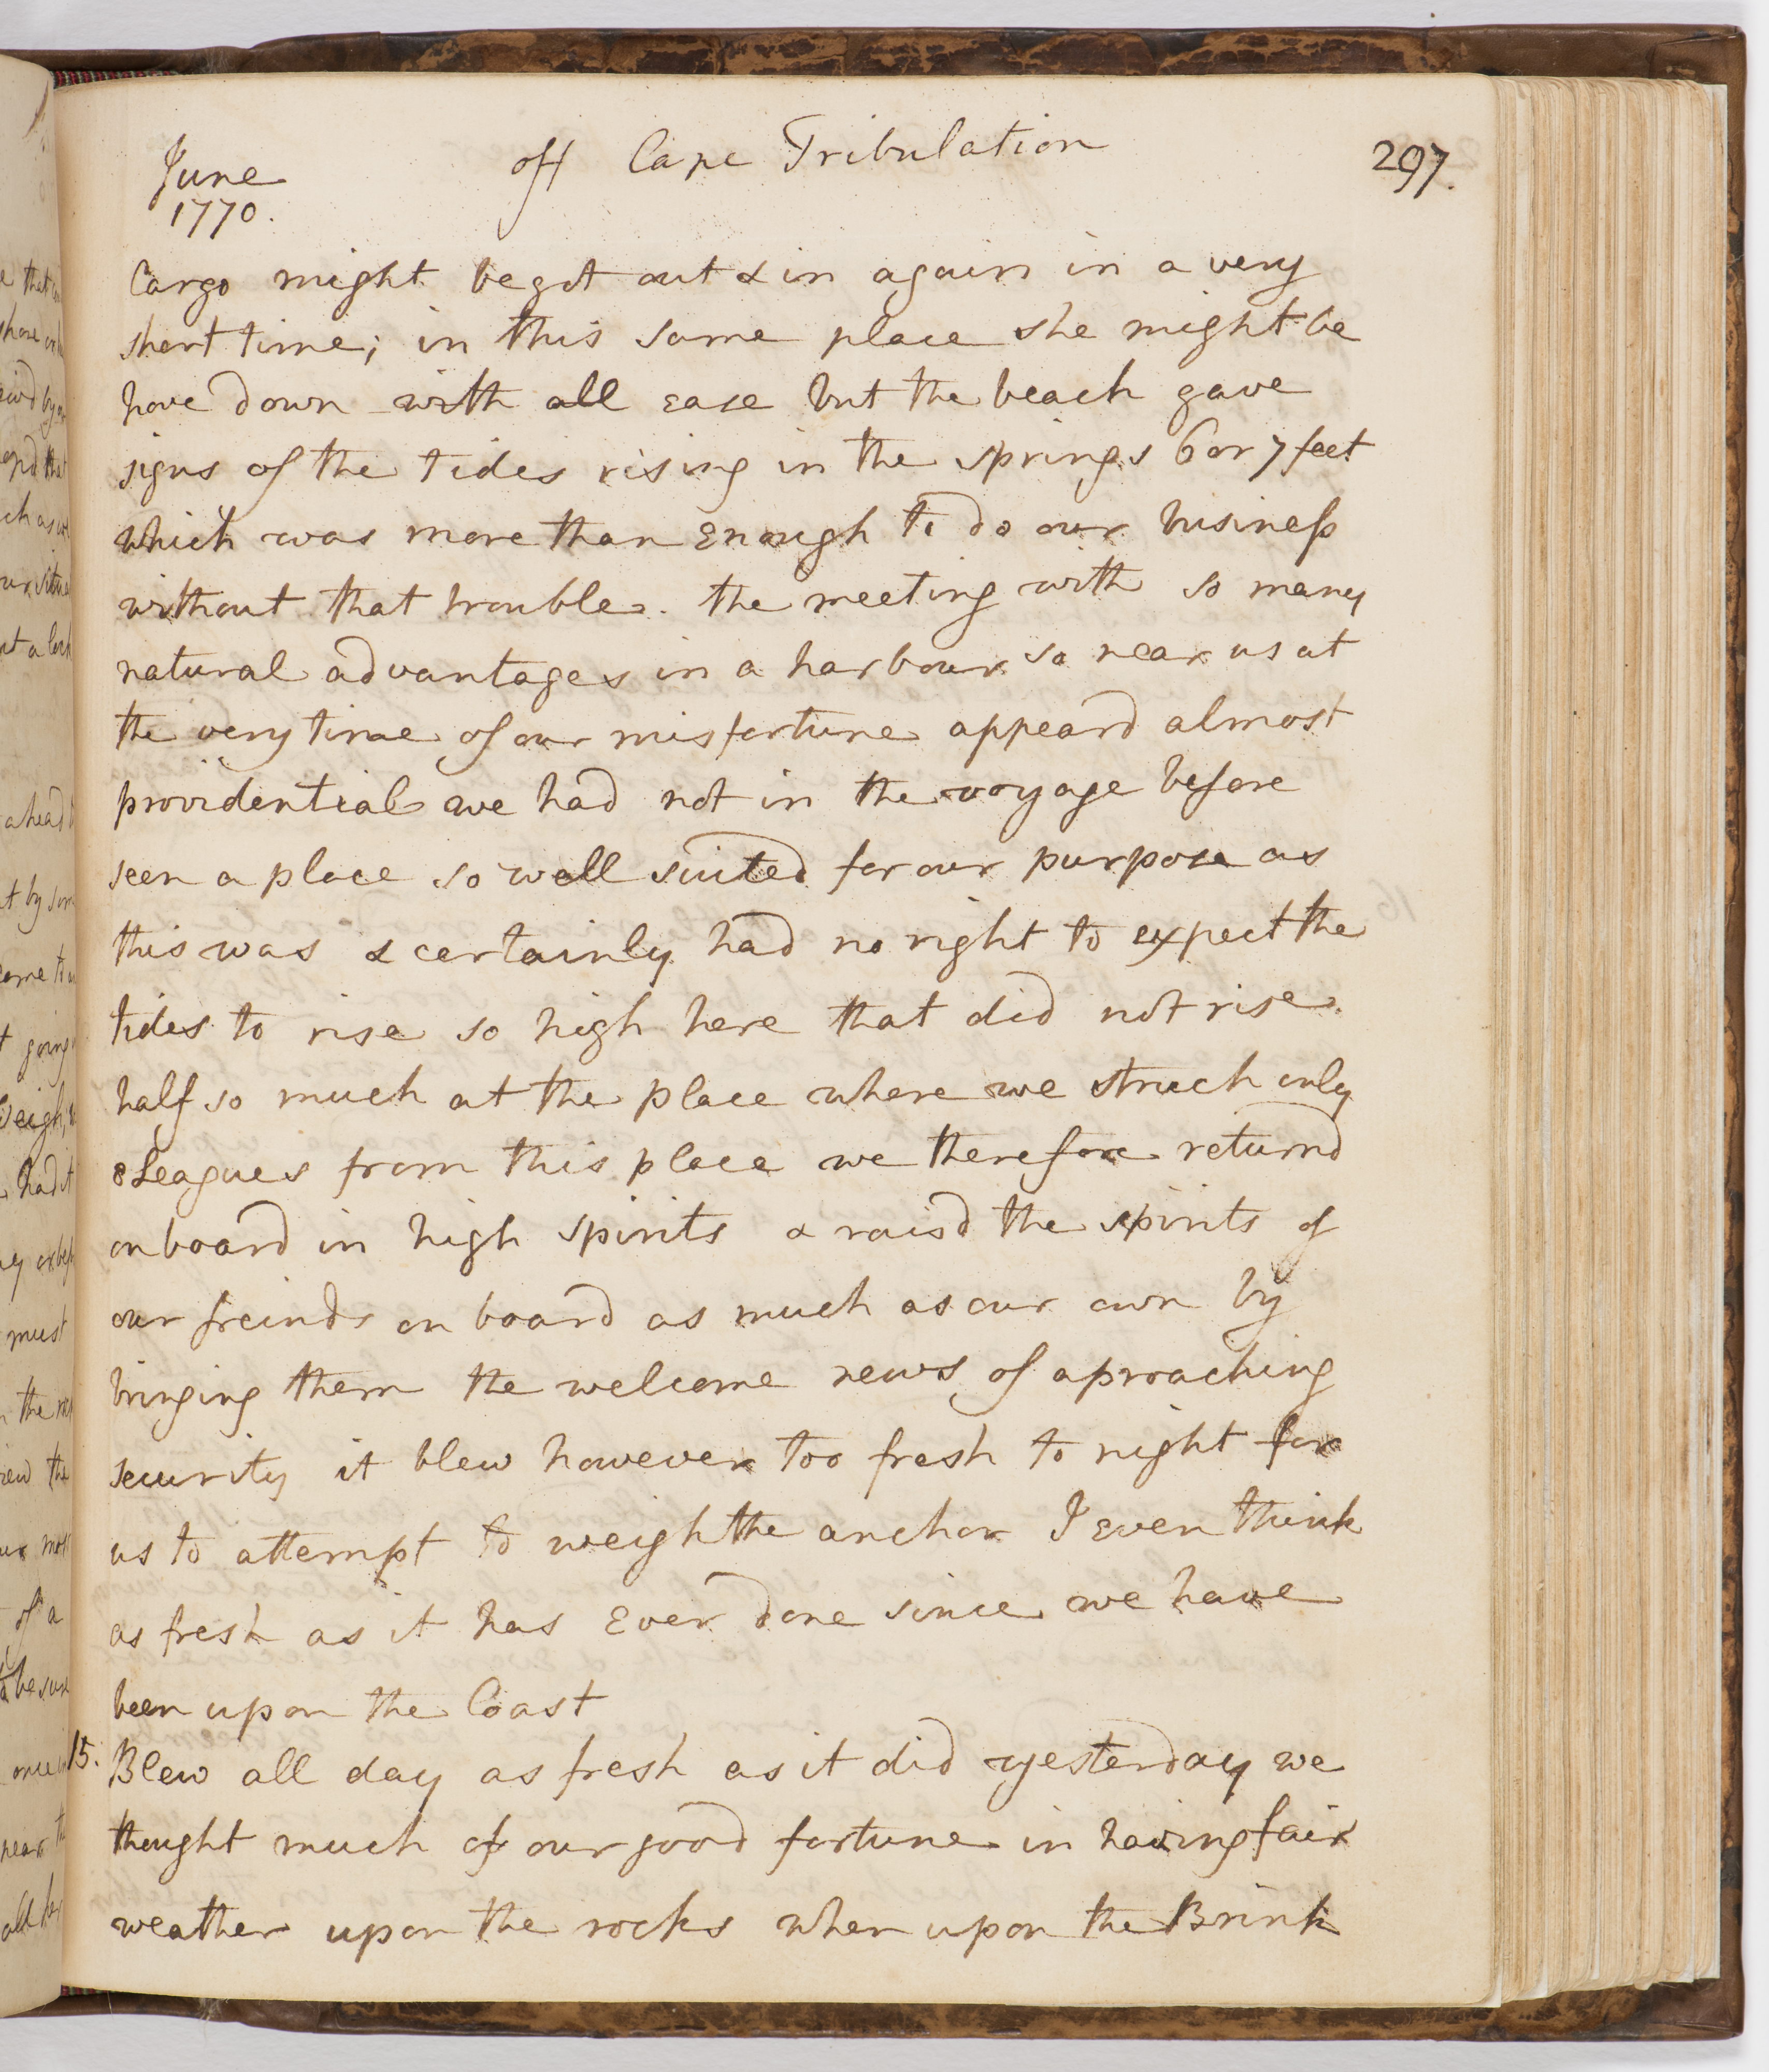 June
1770.
off Cape Tribulation
297.
Cargo might be got out & in again in a very
short time; in this same place she might be
hove down with all ease but the beach gave
signs of the tides rising in the springs 6 or 7 feet
which was more than Enough to do our business
without that trouble. the meeting with so many
natural advantages in a harbour so near us at
the very time of our misfortune appeard almost
providential we had not in the voyage before
seen a place so well suited for our purpose as
this was & certainly had no right to expect the
tides to rise so high here that did not rise
half so much at the place where we struck only
8 Leagues from this place we therefore returnd
on board in high spirits & raisd the spirits of
our freinds on board as much as our own by
bringing them the welcome news of aproaching
security it blew however too fresh to night for
us to attempt to weigh the anchor I even think
as fresh as it has Ever done since we have
been upon the Coast
15. Blew all day as fresh as it did yesterday we
thought much of our good fortune in having fair
weather upon the rocks when upon the Brink